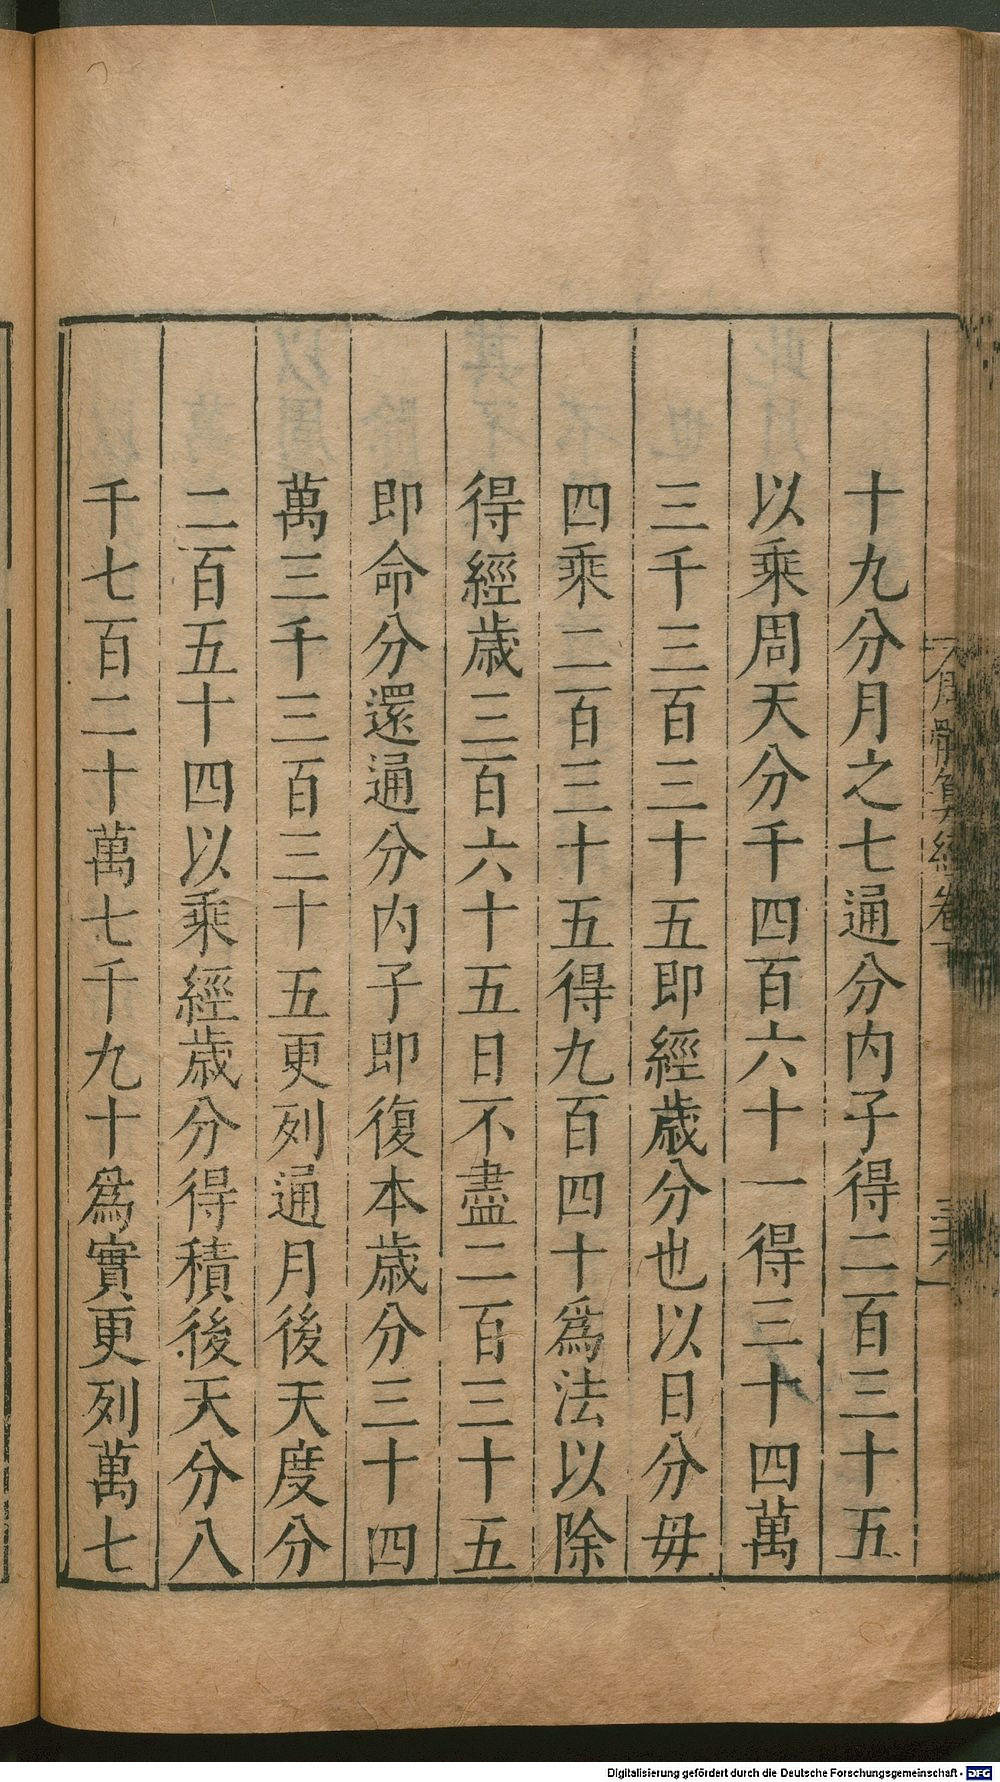 十九分月之七通分内子得二百三十五
以乘周天分千四百六十一得三十四萬
三千三百三十五即經歲分也以日分毋
四乘二百三十五得九百四十爲法以除
得經歲三百六十五日不盡二百三十五
即命分還通分内子即復本歲分三十四
萬三千三百三十五更列通月後天度分
二百五十四以乘經歲分得積後天分八
千七百二十萬七千九十爲實更列萬七
算經卷下
Digitalisierung gefördert durch die Deutsche Forschungsgemeinschaft - DFG